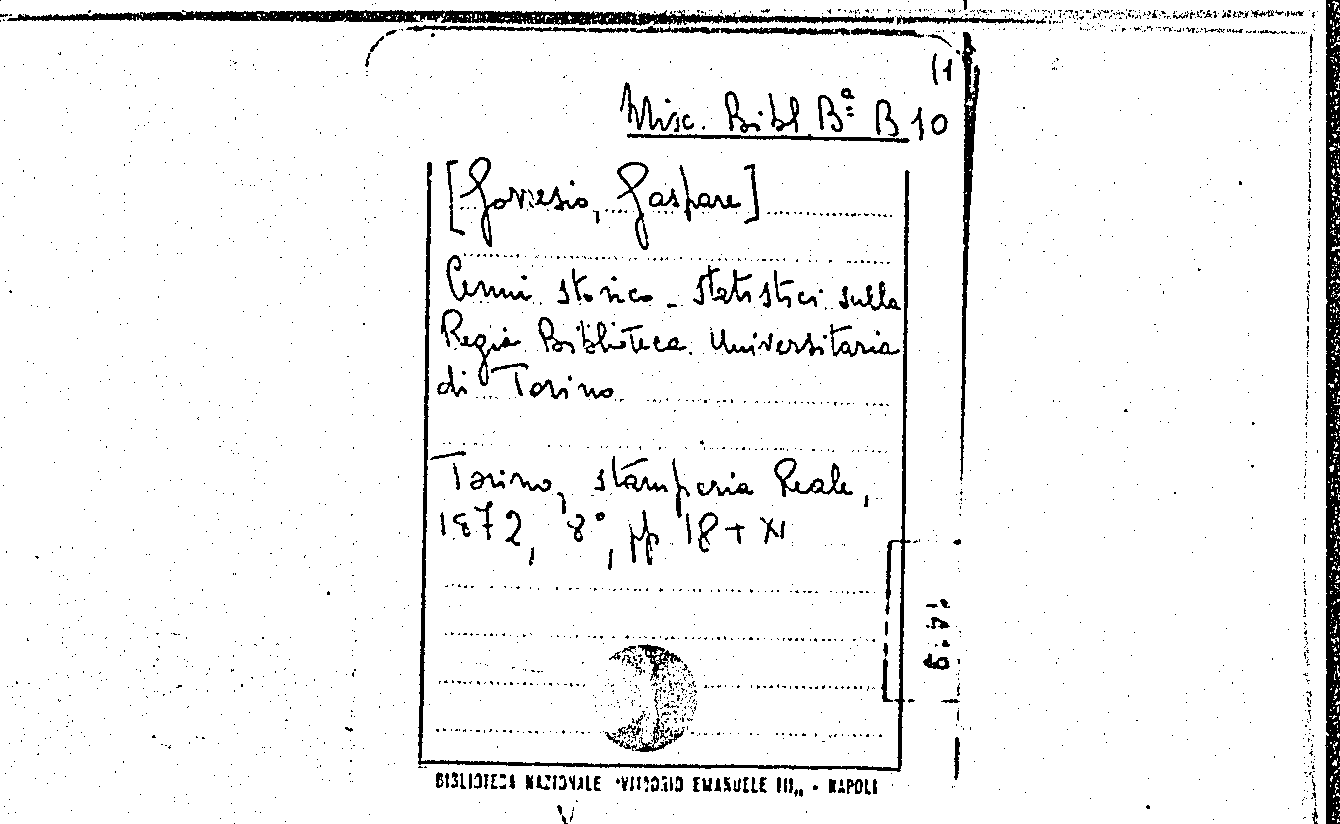 (1
Misc. Bibl. Bª B 10
[Gorresio, Gaspare]
Cenni storico-statistici sulla
Regia Biblioteca Universitaria
di Torino
Torino, stamperia Reale,
1872, 8°, pp 18 + XI
BIBLIOTECA NAZIONALE "VITTORIO EMANUELE III„ - NAPOLI